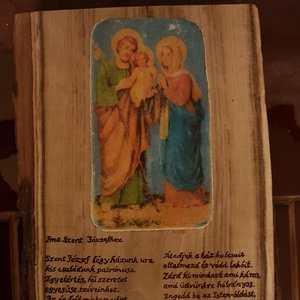 Ima Szent Józsefhez
Szent József légy házunk ura,
kis családunk patrónusa.
Egyetértés, hű szeretet
egyesítse szíveinket.
Átadjuk a ház kulcsait
oltalmazd és védd lakóit.
Zárd ki mindazt ami káros,
ami üdvünkre hátrányos.
Engedd be az Isten áldását,